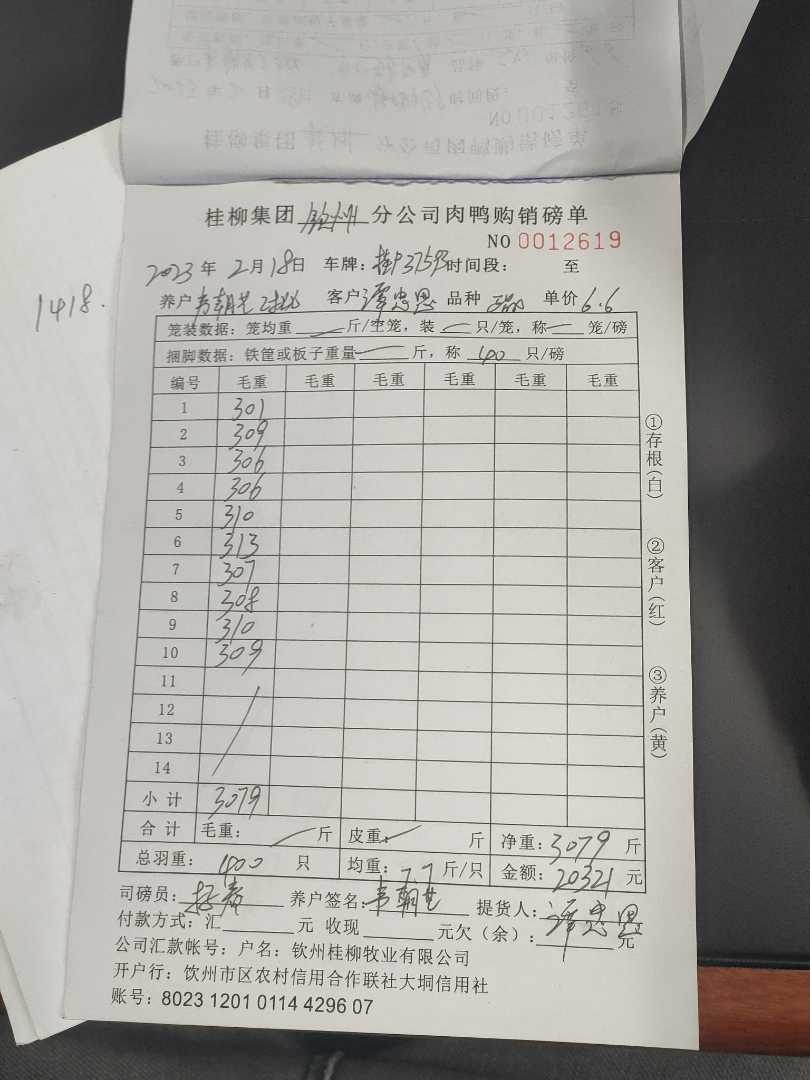 桂柳集团 钦州 分公司肉鸭购销磅单
NO 0012619
2023 年 2 月 18 日 车牌: 桂P37593 时间段: 至
1418.
养户 韦朝 客户 谭忠恩 品种 单价 6.6
笼装数据: 笼均重 斤/空笼, 装 只/笼, 称 笼/磅
捆脚数据: 铁筐或板子重量 斤, 称 40 只/磅
编号 毛重 毛重 毛重 毛重 毛重 毛重
1 301
2 309
3 306
4 306
5 310
6 313
7 307
8 308
9 310
10 309
11
12
13
14
小计 3079
合计 毛重: 斤 皮重: 斤 净重: 3079 斤
总羽重: 400 只 均重: 7.7 斤/只 金额: 20321 元
①存根(白) ②客户(红) ③养户(黄)
司磅员: 养户签名: 韦朝 提货人: 谭忠恩
付款方式: 汇 元 收现 元欠(余): 元
公司汇款帐号: 户名: 钦州桂柳牧业有限公司
开户行: 钦州市区农村信用合作联社大垌信用社
账号: 8023 1201 0114 4296 07